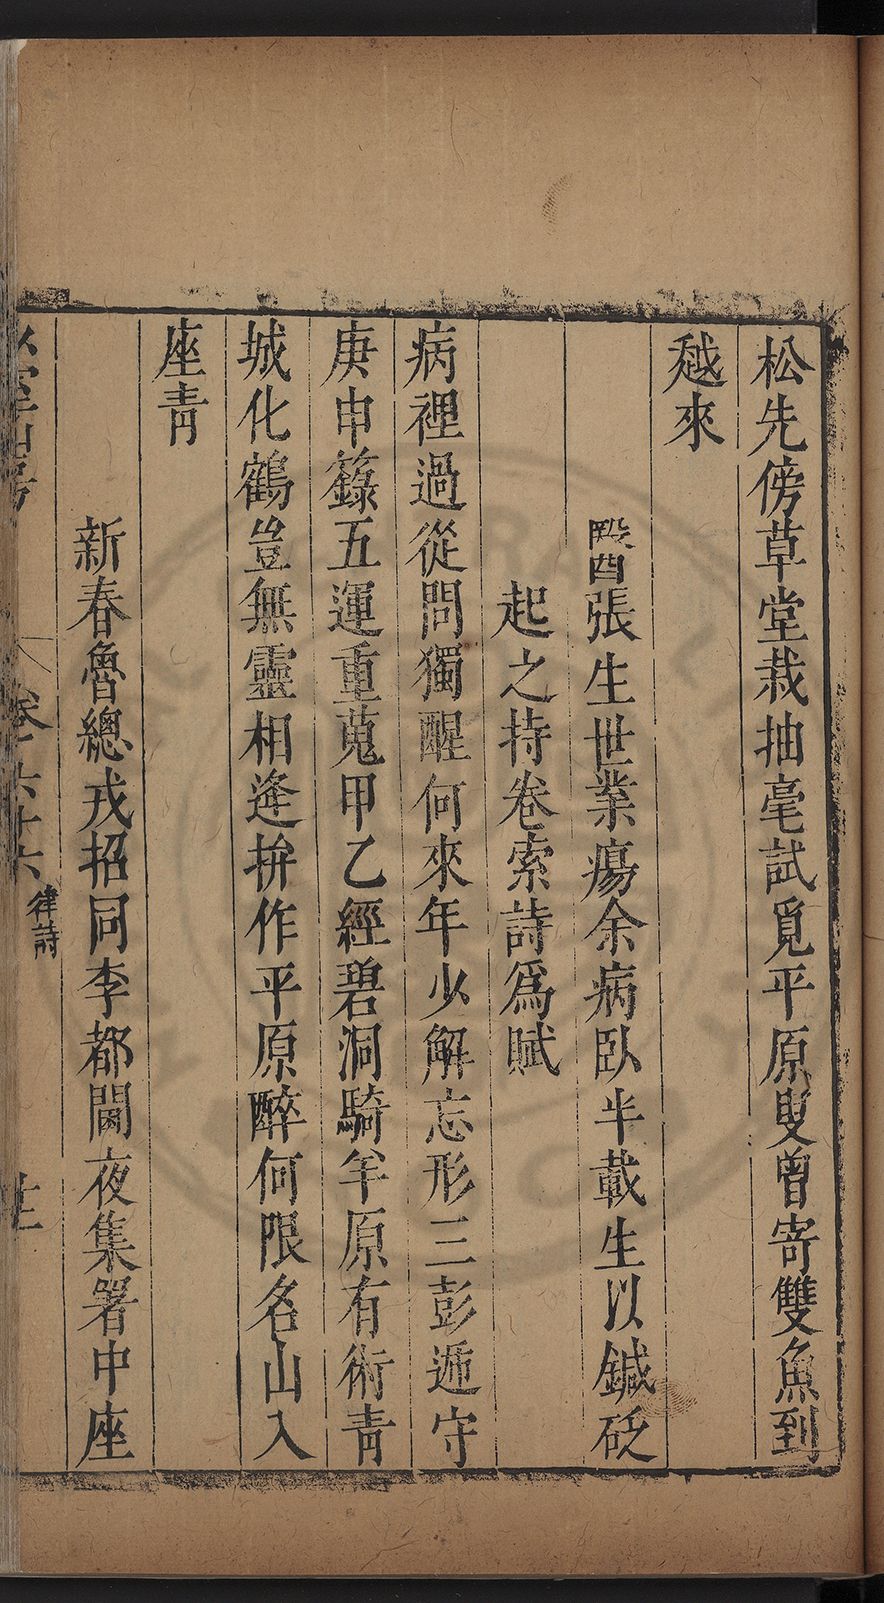 松先傍草堂栽抽毫試覓平原叟曾寄雙魚到
越來
張生世業瘍余病臥半載生以鍼砭
起之持卷索詩爲賦
病裡過從問獨醒何來年少解忘形三彭遁守
庚申籙五運重蒐甲乙經碧洞騎羊原有術青
城化鶴豈無靈相逢拚作平原醉何限名山入
座青
新春魯總戎招同李都閫夜集署中座
卷之六十六 律詩